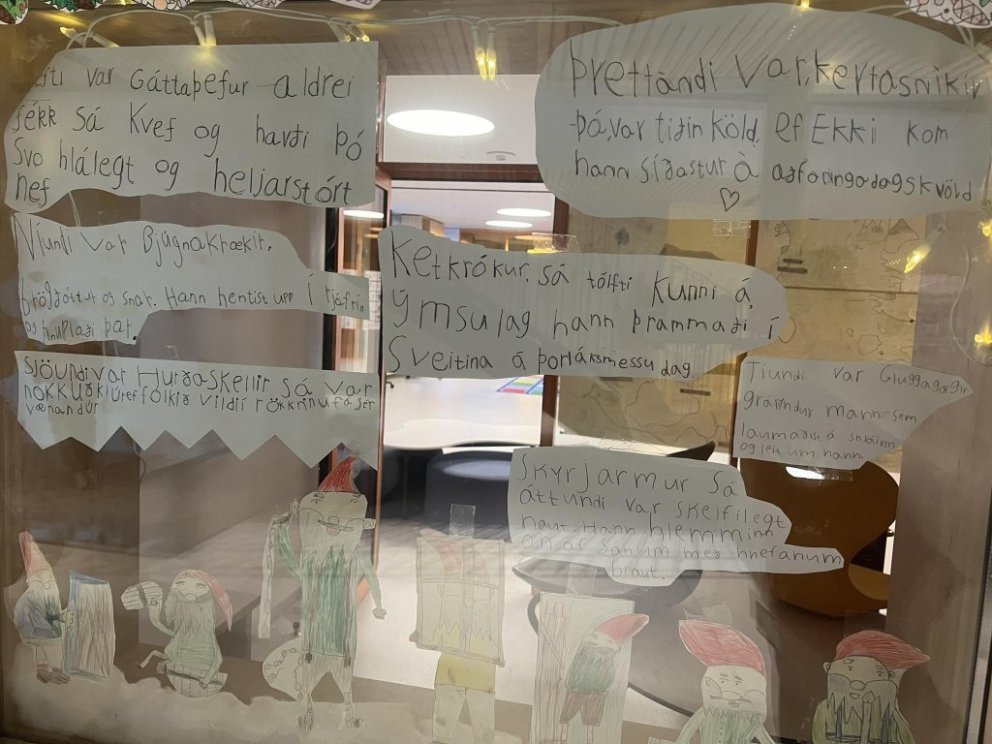 var Gáttaþefur aldrei
fékk sá kvef og harði þó
svo hlálegt og heljarstórt
nef
Þrettándi var, kertasníkir
-þá, var tíðin köld, ef EKKI kom
hann síðastur à aðfaangadagskvöld
Níundi var Bjúgnakrækir,
brögðóttur og snar. Hann hentist upp í rjáfrin
og hnuplaði þar.
Ketkrókur, sá tólfti kunni á
ýmsu lag hann þrammaði í
Sveitina á þorláksmessu dag.
Sjöundi var Hurðaskellir sá var
nokkuð klúr ef fólkið vildi í rökkrinu fá sér
vænan dúr
Tíundi var Gluggagægir
grályndur mann sem
laumaðist á skjáinn
og leit um hann.
Skyrjarmur sá
áttundi var skelfilegt
naut. Hann hlemminn
með hnefanum
braut.